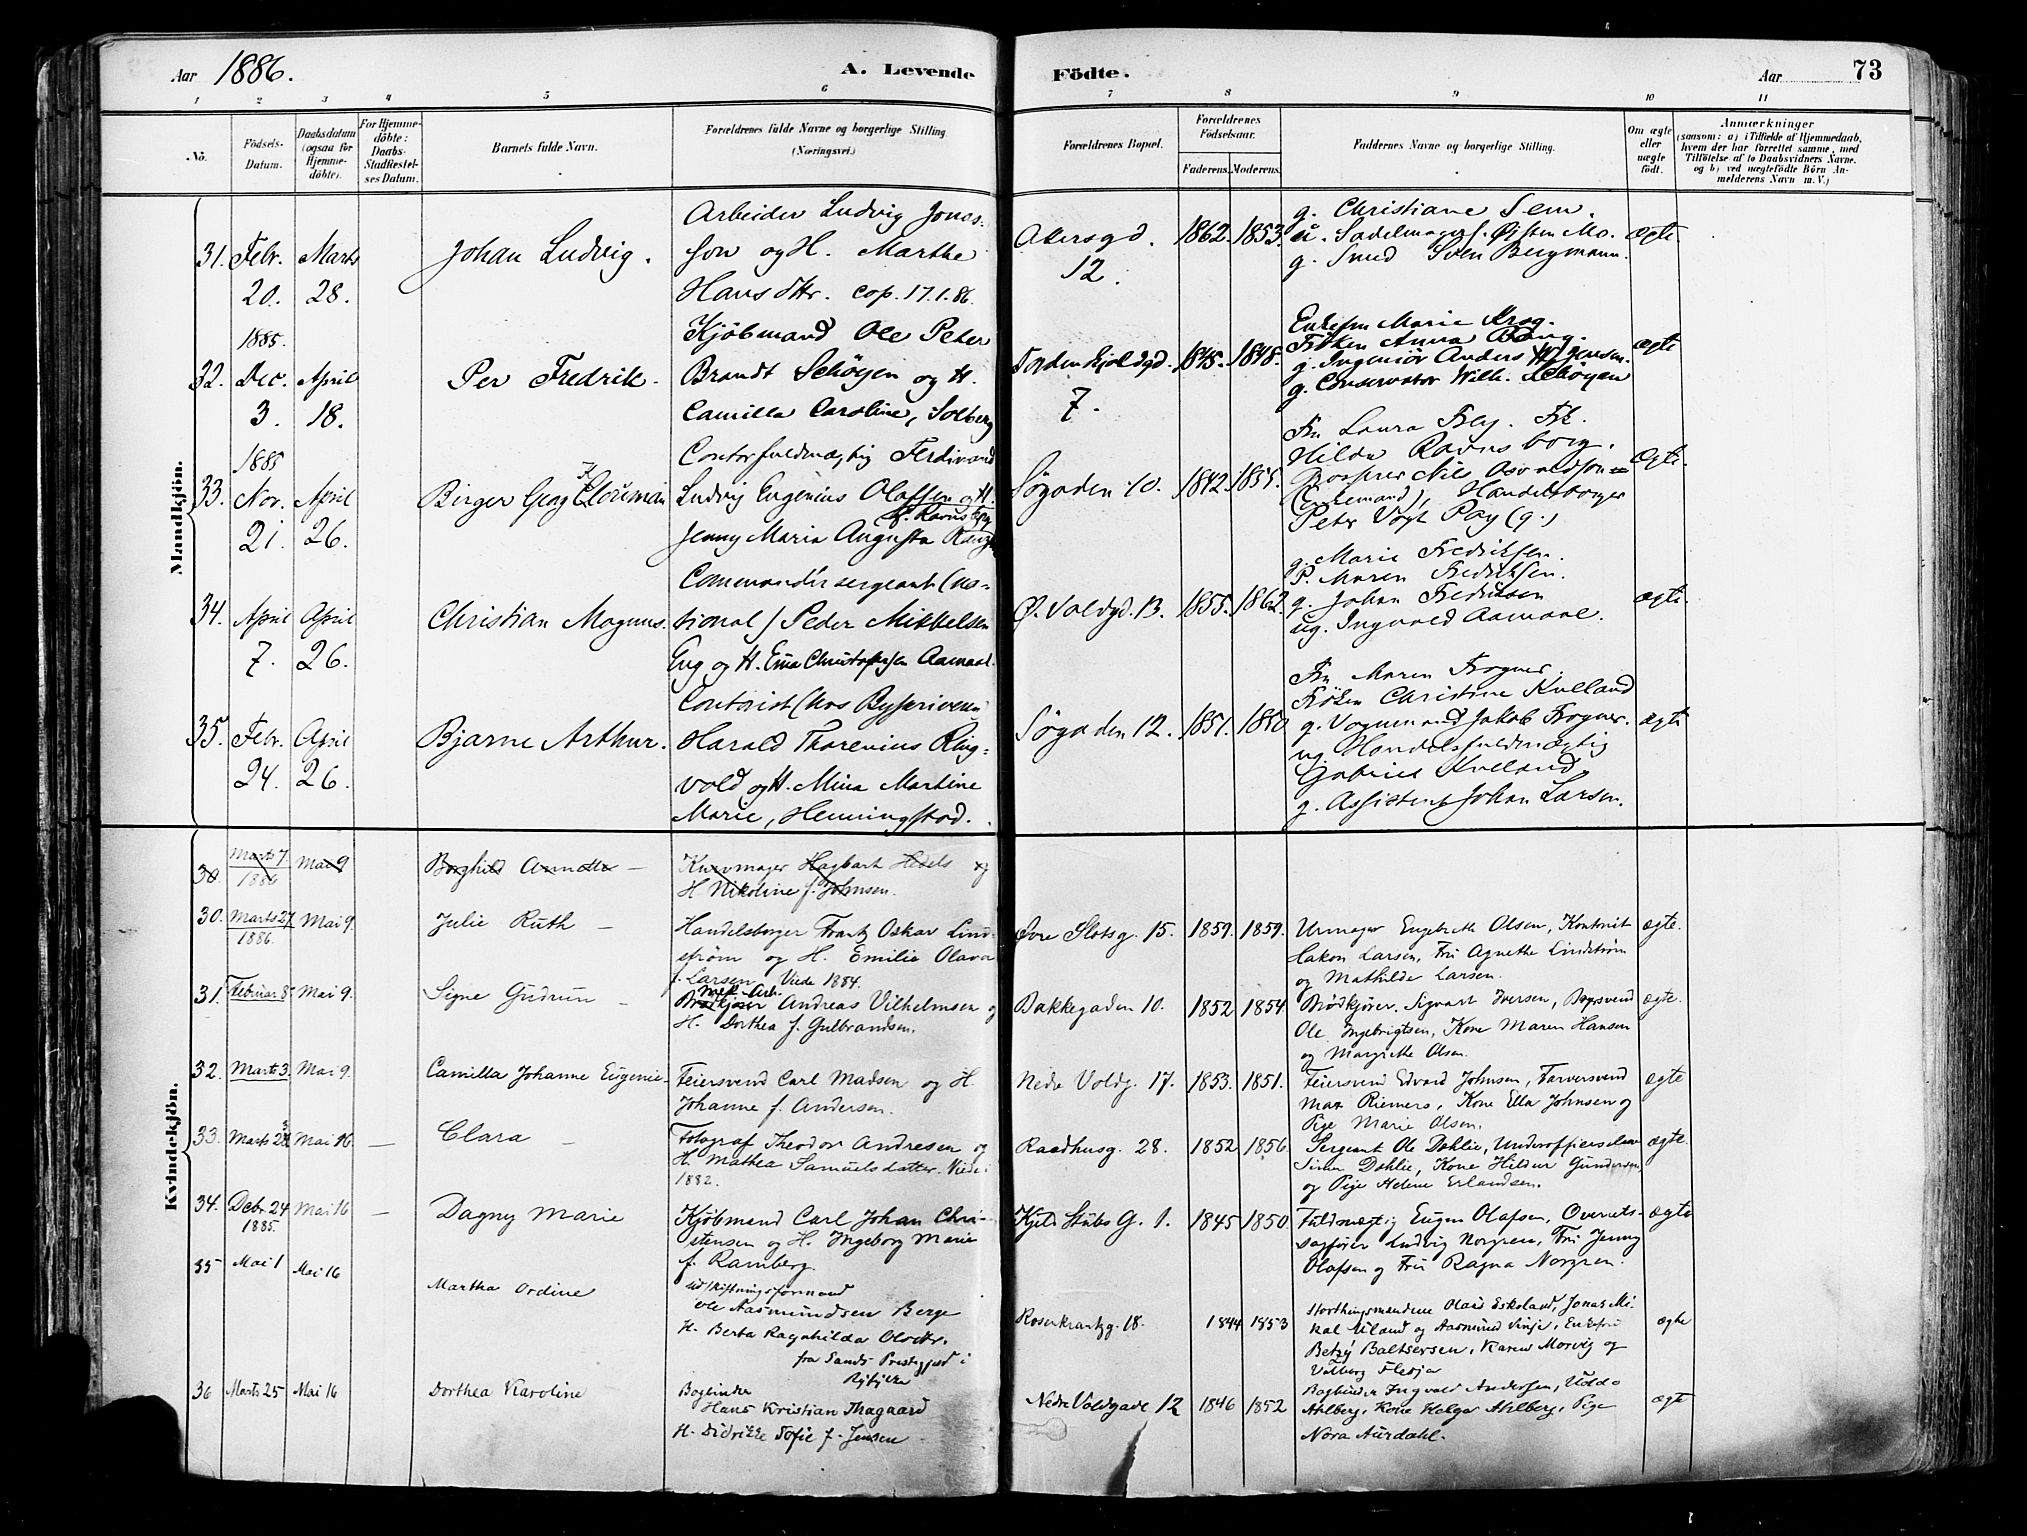 Aar 1886. A. Levende Födte. Aar 73
1 2 3 4 5 6 7 8 9 10 11
Nö.
Födsels-Datum.
Daabsdatum (ogsaa for Hjemme-döbte).
For Hjemme-döbte: Daabs-Stadfæstel-ses Datum.
Barnets fulde Navn.
Forældrenes fulde Navne og borgerlige Stilling (Næringsvei.)
Forældrenes Bopæl.
Forældrenes Födselsaar.
Faderens. Moderens.
Faddernes Navne og borgerlige Stilling.
Om ægte eller uægte født.
Anmærkninger
(saasom: a) i Tilfælde af Hjemmedaab,
hvem der har forrettet samme, med
Tilföielse af to Daabsvidners Navne.
og b) ved uægtefödte Börn An-
melderens Navn m. V.)
Mandkjön.
31. Febr. 20. Marts 28.
Johan Ludvig.
Arbeider Ludvig Jonas-
son og H. Marthe
Hansdttr. cop. 17.1.86.
Akersgd. 12.
1862. 1853.
g. Christiane Sem.
u. Sadelmagers. Øisten Mo.
g. Smed Sven Bergmann.
ægte.
32. 1885. Dec. 3. April 18.
Per Fredrik.
Kjöbmand Ole Peter
Brandt Schöyen og H.
Camilla Caroline, Solberg
Tordenskjoldsgd. 7.
1845. 1848.
Enkefru Marie Krag.
Fröken Anna Bang.
g. Ingeniör Anders W. Jensen.
g. Conservator Wilh. Schöyen
ægte
33. 1885 Nov. 21. April 26.
Birger Georg
Contorfuldmægtig Ferdinand
Ludvig Eugenius Olafsen og H.
f. Ravnsborg
Jenny Maria Augusta
Søgaden 10.
1842. 1855.
Fru Laura Fr.
Hilda Ravnsborg.
Nils
(Enkemand), Handelsborger
Peter Vogt Pay (g.)
Ægte.
34. April 7. April 26.
Christian Magnus.
Commandérsergeant (na-
tional) Peder Mikkelsen
Eng og H. Christophersen Aamaal.
Ø. Voldgd. 13.
1855. 1862.
g. Marie Fredriksen.
P. Maren Fredriksen.
g. Johan Fredriksen
ug. Ingvald Aamaal.
ægte.
35. Febr. 24. April 26.
Bjarne Arthur.
Contorist (hos Byskriveren)
Harald Thorenius Ring-
vold og H. Mina Martine
Marie, Henningstad.
Søgaden 12.
1851. 1850
Fru Maren Frogner.
Fröken Christine Kvelland
g. Vognmand Jakob Frogner.
ug. Handelsfuldmægtig
Gabriel Kvelland.
g. Assistent Johan Larsen.
ægte
Kvindekjön.
30. Marts 7 1886 Mai 9
Borghild Annette —
Kurvmager Hagbart Hedels og
H. Nikoline f. Johnsen.
30. Marts 27 1886. Mai 9.
Julie Ruth —
Handelsborger Frantz Oskar Lind-
strøm og H. Emilie Olava
f. Larsen Viede 1884.
Øvre Slotsg. 15. 1859. 1859.
Urmager Engebreth Olsen, Kontorist
Hakon Larsen, Fru Agnethe Lindstrøm
og Mathilde Larsen.
ægte.
31. Februar 8 Mai 9.
Signe Gudrun —
Andreas Vilhelmsen og
H. Dorthea f. Gulbrandsen.
Bakkegaden 10. 1852 1854.
Brødkjører Sigvart Iversen, Bøgsvend
Ole Ingebrigtsen, Kone Maren Hansen
og Margrethe Olsen.
ægte.
32. Marts 3. Mai 9.
Camilla Johanne Eugenie.
Feiersvend Carl Madsen og H.
Johanne f. Andersen.
Nedre Voldg. 17. 1853. 1851.
Feiersvend Edvard Johnsen, Farversvend
Max Riemers, Kone Ella Johnsen og
Pige Marie Olsen.
ægte
33. Marts 23 Mai 16 —
Clara —
Fotograf Theodor Andresen og
H. Mathea Samuelsdatter. Viede
1882.
Raadhusg. 28. 1852 1856.
Sergeant Ole Dahlie, Underofficerselev
Simen Dahlie, Kone Hildur Gundersen
og Pige Helene Erlandsen.
ægte.
34. Debr 24 1885. Mai 16 —
Dagny Marie
Kjöbmand Carl Johan Chri-
stensen og H. Ingeborg Marie
f. Ramberg.
Kjeld Stubs G. 1. 1845 1850
Fuldmægtig Eugen Olafsen, Overrets-
sagfører Ludvig Norgren, Fru Jenny
Olafsen og Fru Ragna Norgren.
ægte
35 Mai 1 Mai 16
Martha Ordine
Udskiftningsformand
Ole Aasmundsen Berge
H. Berta Ragnhilda Olsdtr.
fra Sands Prestegjeld i
Ryfylke
Rosenkrantzg. 18. 1844 1853
Storthingsmændene Olaus Eskeland, Jonas Mi-
kal Eiland og Aasmund Vinje, Enkefru
Betzy Baltsersen, Karen Morvig og
Valborg Flesja
ægte
36 Marts 25 Mai 16
Dorthea Karoline
Bogbinder
Hans Kristian Thagaard
H. Didrikke Sofie f. Jensen
Nedre Voldgade 12 1846 1852
Bogbinder Ingvald Andersen,
Ahlberg, Kone Helga Ahlberg, Pige
Nora Aurdahl.
ægte